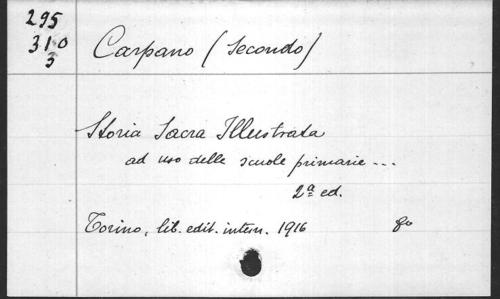 295
310
3
Carpano (Secondo)
Storia Sacra Illustrata
ad uso delle scuole primarie ...
2ª ed.
Torino, lib. edit. intern. 1916 8º